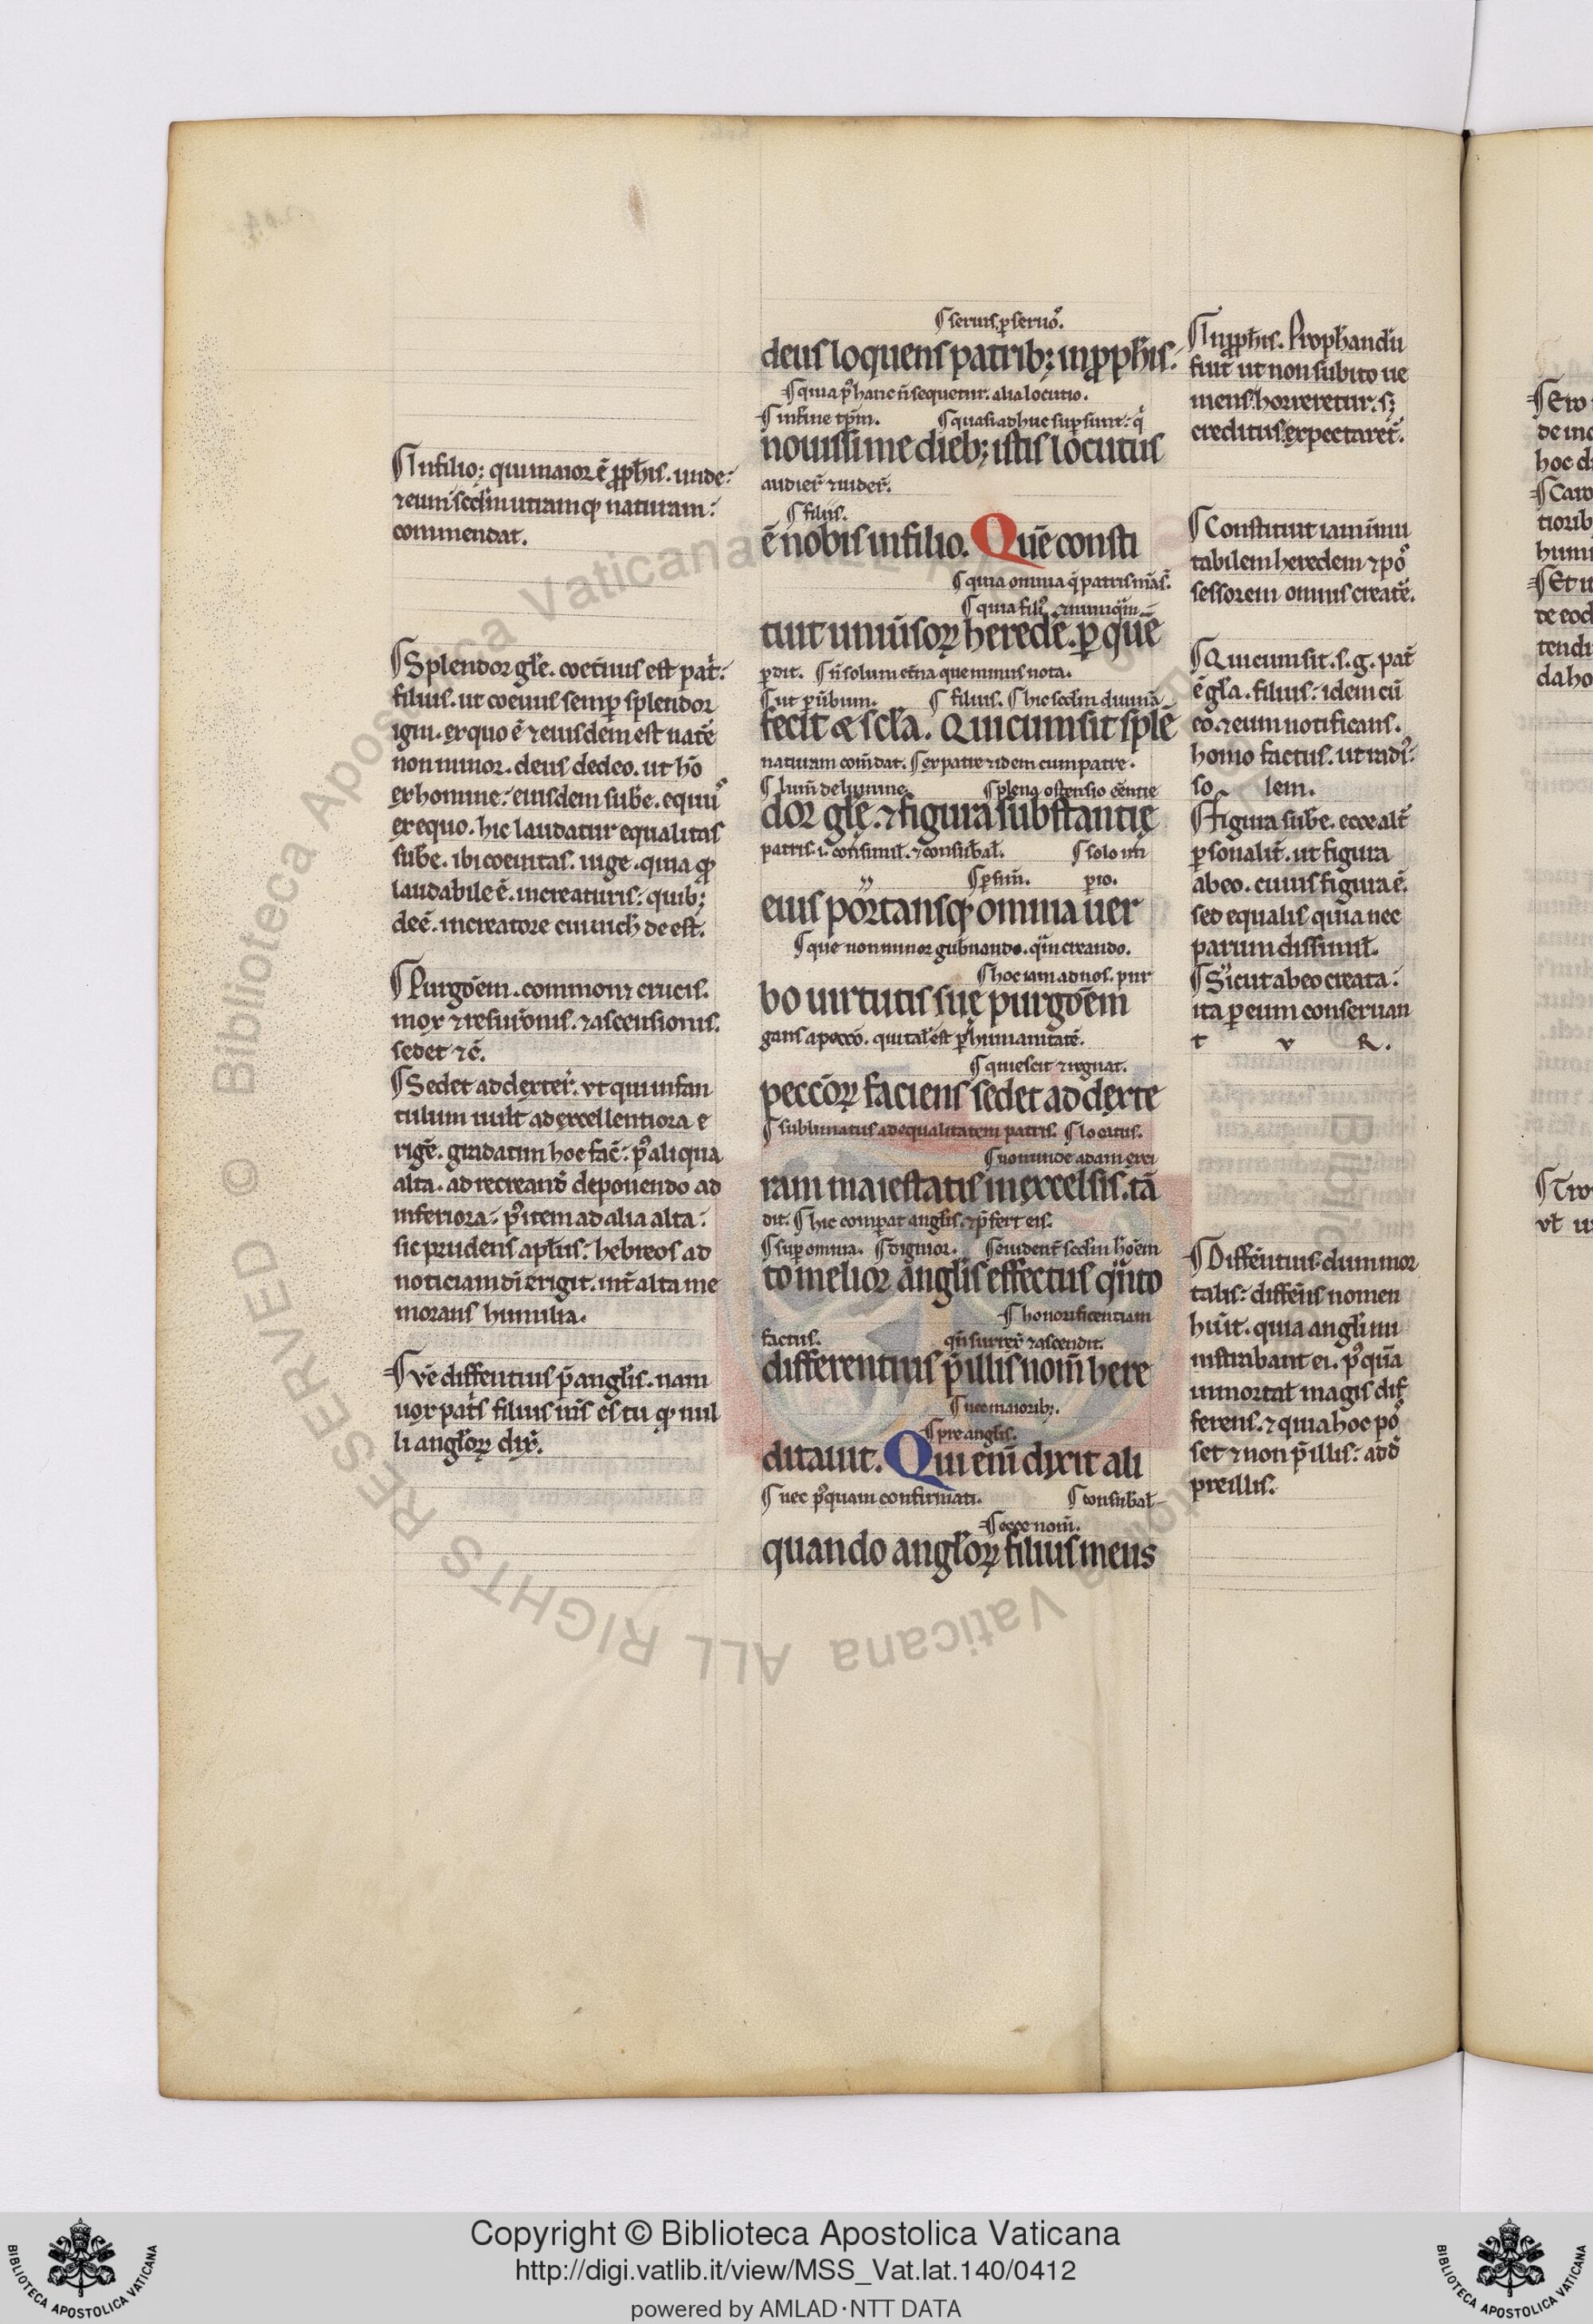 ¶ In filio; qui maior ē ꝓph̄is. unde:
⁊ eum scd̄m utramq; naturam:
commendat.
¶ Splendor gl̄e. coet̄nus est pat̄:
filius. ut coeuus semꝑ splendor
igni. ex quo ē ⁊ eiusdem est nat̄e
non minor. deus de deo. ut hō
ex homine: eiusdem sub̄e. equuꝰ
ex equo. hic laudatur equalitas
sub̄e. ibi coet̄nitas.
laudabile ē. in creaturis: quib;
deē. in creatore cui nich̄ deest.
¶ Purgōem. commonet crucis.
mox ⁊ resur̄onis. ⁊ ascensionis.
sedet ⁊ c̄.
¶ Sedet ad dexter̄. vt qui infan
tulum uult ad excellentiora e
riḡe. gradatim hoc fac̄: pꝰ aliqua
alta. ad recreand̄ deponendo ad
inferiora: pꝰ item ad alia alta:
sic prudens apl̄us: hebreos ad
noticiam dī erigit. int̄ alta me
morans humilia.
¶ Ve diff̄entius p̄ angl̄is. nam
uox pat̄s filius m̄s es tu qd̄ nul
li angl̄oꝝ dix̄.
¶ seruis. ꝑ seruōꝰ.
deus loquens patrib; in ꝓph̄is.
¶ quia pꝰ hanc n̄ sequetur. alia locutio.
¶ in fine tp̄m. ¶ quasi adhuc suꝑ sint: q̄
nouissime dieb; istis locutus
audier̄ ⁊ uider̄.
¶ filius.
ē nobis in filio. Quē consti
¶ quia omnia q̄ patris m̄a s̄.
¶ quia filiꝰ ⁊ nunq̄m
tuit uniūsoꝝ heredē. ꝑ quē
ꝑdit. ¶ n̄ solum et̄na que minus nota.
¶ ut ꝑ ūbum. ¶ filius. ¶ hic scd̄m diuinā
fecit ⁊ scl̄a. Qui cum sit splē
naturam com̄dat. ¶ ex patre ⁊ idem cum patre.
¶ lum̄ de lumine. ¶ plena ostensio eēntie
dor gl̄ę. ⁊ figura substantię
patris .i. consimil̄. ⁊ consub̄al̄. ¶ solo im
¶ ꝑ sum̄. ꝑio.
eius portansq; omnia uer
¶ que non minor gub̄nando. q̄m creando.
¶ hoc iam ad nos. pur
bo uirtutis suę purgōem
gans a pecc̄o. qui tal̄ est ꝑ humanitatē.
¶ quiescit ⁊ regnat.
pecc̄oꝝ faciens sedet ad dexte
¶ sublimatus ad equalitatem patris. ¶ locutus.
¶ non unde adam exci
ram maiestatis in excelsis. tā
dit. ¶ hic comparat angl̄is. ⁊ p̄fert eis.
¶ suꝑ omnia. ¶ dignior. ¶ euident̄ scd̄m hōem
to melior angl̄is effectus q̄nto
¶ honorificentiam
factus. qn̄ surrex̄ ⁊ ascendit.
differentius p̄ illis nom̄ here
¶ nec maiorib;.
¶ pre angl̄is.
ditauit. Qui enī dixit ali
¶ nec pꝰquam confirmati. ¶ consub̄al̄
¶ ecce nom̄.
quando angl̄oꝝ filius meus
¶ In ꝓph̄is. Prophandū
fuit ut non subito ue
niens horreretur. s;
creditus expectaret̄.
¶ Constituit iam inmu
tabilem heredem ⁊ poſ
sessorem omnis creat̄e.
¶ Qui cum sit .s. g. pat̄
ē gl̄a. filius: idem cū
eo. ⁊ eum notificans.
homo factus. ut radiꝰ:
so lem.
¶ Figura sub̄e. ecce alt̄
ꝑsonalit̄. ut figura
ab eo. cuius figura ē.
sed equalis quia nec
parum dissimil̄.
¶ Sicut ab eo creata:
ita ꝑ eum conseruan
t v R.
¶ Diffēntius dum mor
talis: diffēns nomen
hūit. quia angl̄i mi
nistrabant ei. pꝰquā
inmortal̄ magis dif
ferens. ⁊ quia hoc poſ
set ⁊ non p̄ illis: add̄
pre illis.
Copyright © Biblioteca Apostolica Vaticana
http://digi.vatlib.it/view/MSS_Vat.lat.140/0412
powered by AMLAD·NTT DATA